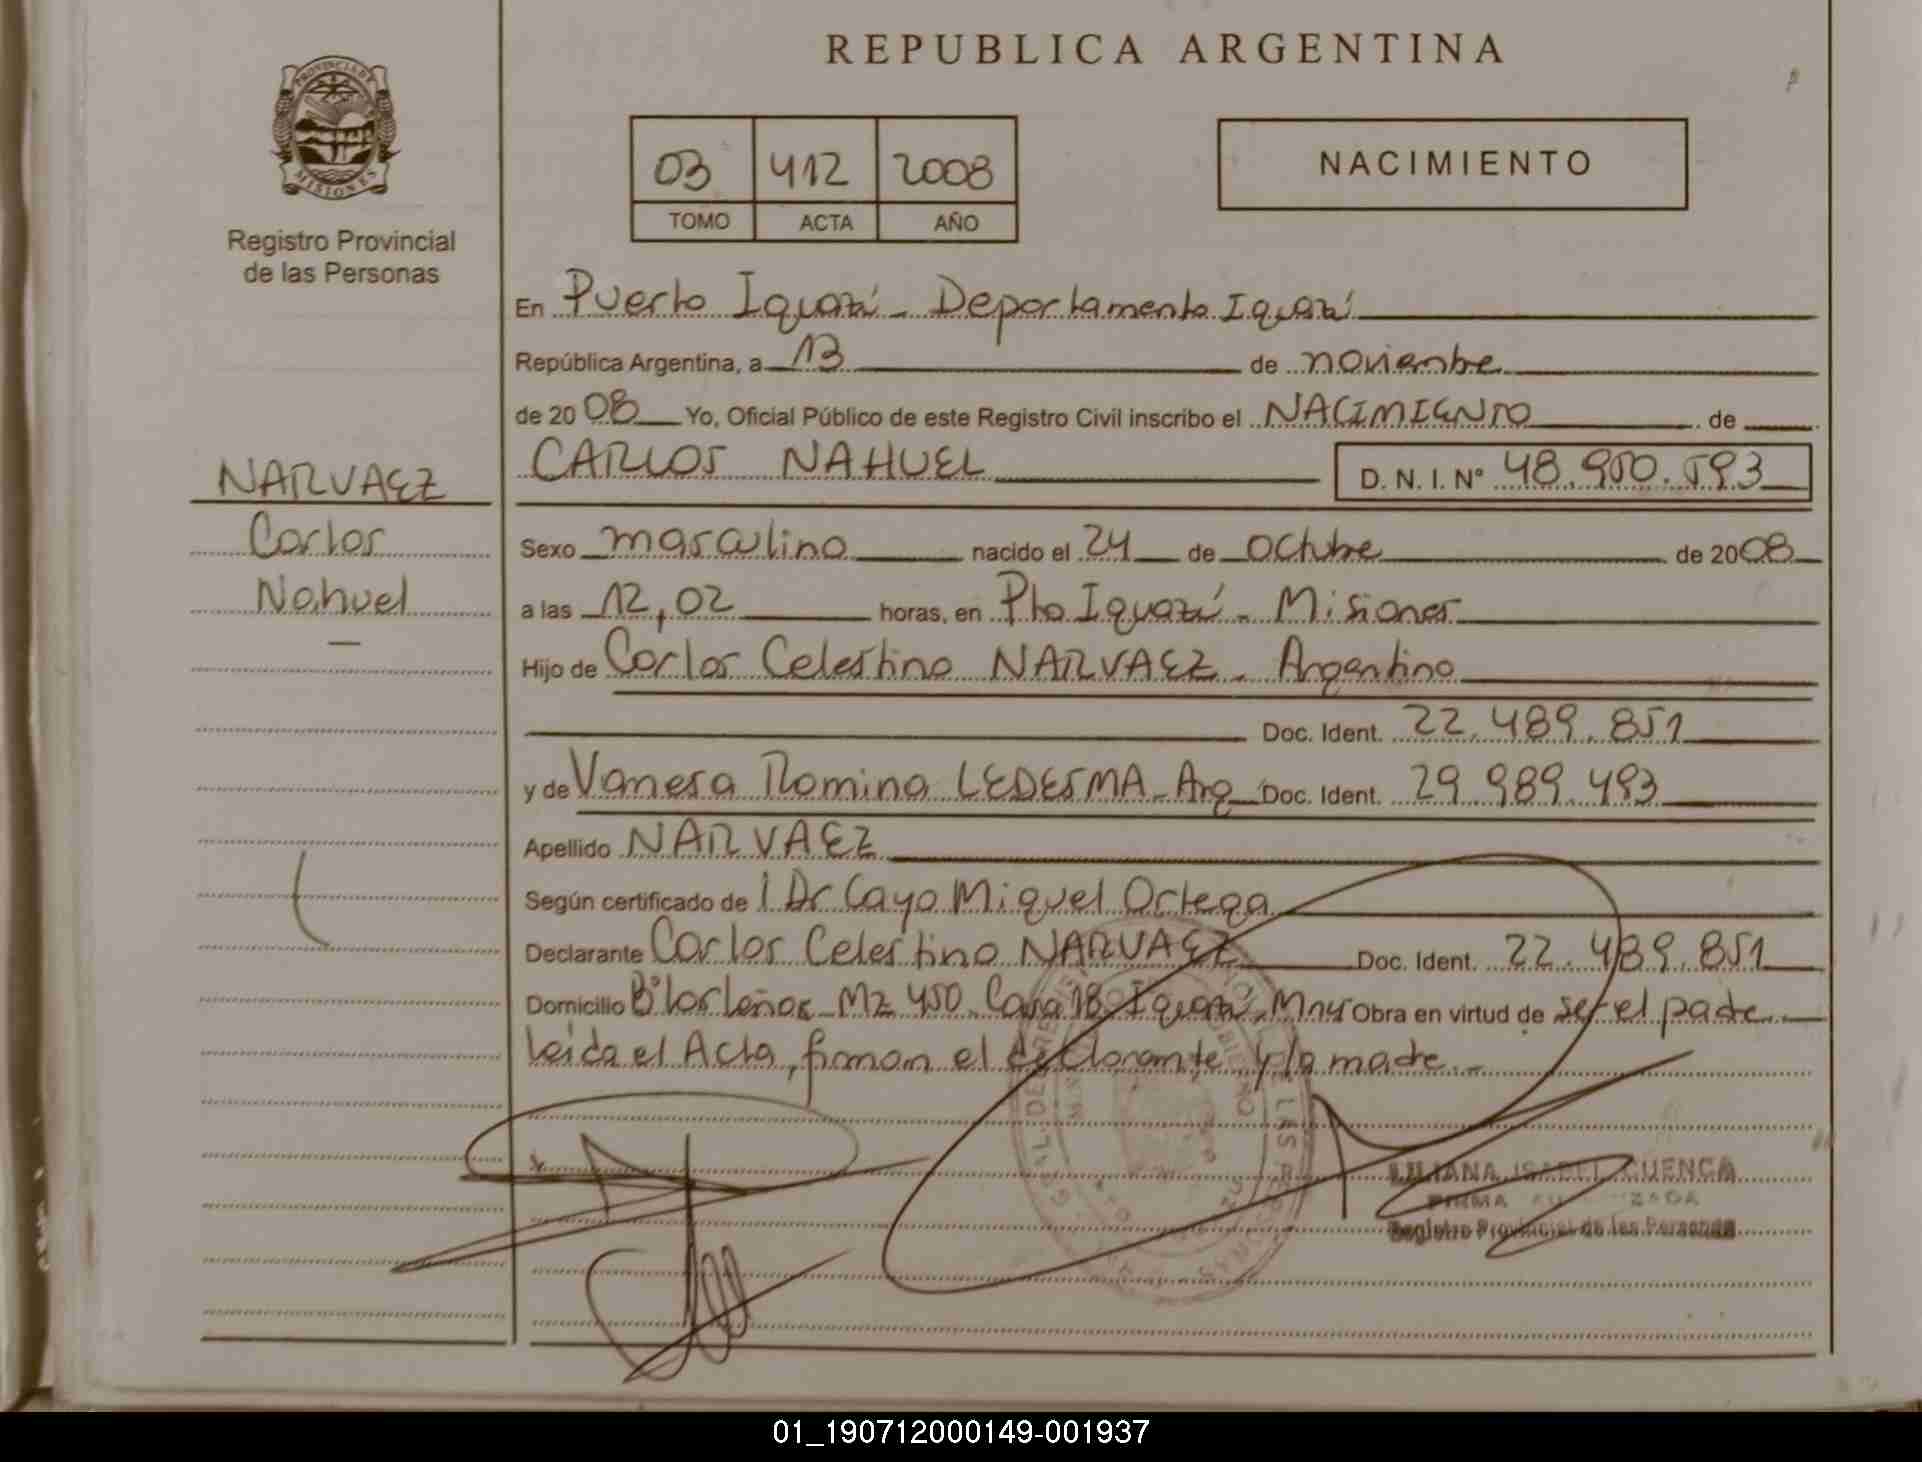 REPUBLICA ARGENTINA
PROVINCIA DE
MISIONES
Registro Provincial
de las Personas
03 412 2008
TOMO ACTA AÑO
NACIMIENTO
En Puerto Iguazú - Departamento Iguazú
República Argentina, a 13 de noviembre
de 2008 Yo, Oficial Público de este Registro Civil inscribo el NACIMIENTO de
NARVAEZ
Carlos
Nahuel
CARLOS NAHUEL D. N. I. Nº 48.950.593
Sexo masculino nacido el 24 de octubre de 2008
a las 12,02 horas, en Pto Iguazú - Misiones
Hijo de Carlos Celestino NARVAEZ - Argentino
Doc. Ident. 22.489.851
y de Vanesa Romina LEDESMA - Arg Doc. Ident. 29.989.493
Apellido NARVAEZ
Según certificado de l Dr Cayo Miguel Ortega
Declarante Carlos Celestino NARVAEZ Doc. Ident. 22.489.851
Domicilio Bº las leñas Mz 450 Casa 18 Iguazú, Mnes Obra en virtud de ser el padre
leida el Acta, firman el declarante y la madre.-
LILIANA ISABEL CUENCA
FIRMA AUTORIZADA
Registro Provincial de las Personas
01_190712000149-001937